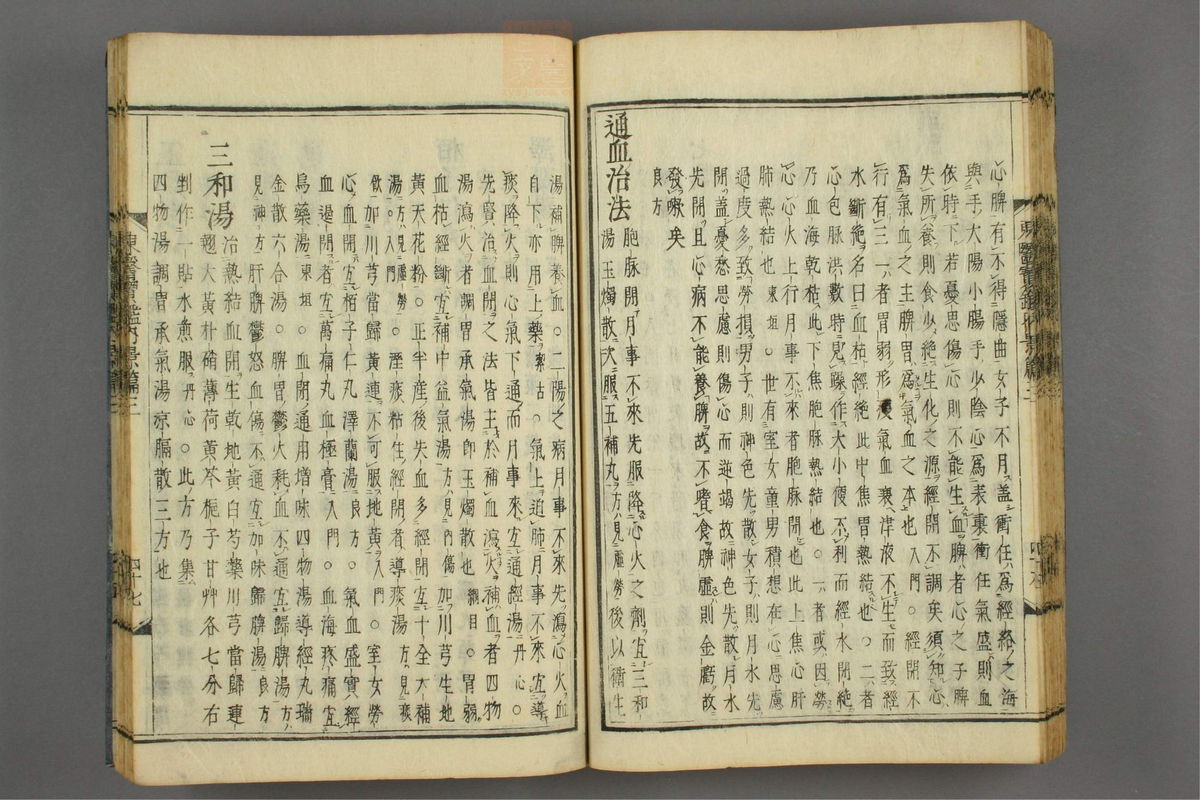 心脾有不得隱曲女子不月盖衝任爲經絡之海
與手大陽小腸手少陰心爲表裏衝任氣盛則血
依時下若憂思傷心則不能生血脾者心之子脾
失所養則食少絶生化之源經閉不調矣須知心
爲氣血之主脾胃爲氣血之本也入門○經閉不
行有三一者胃弱形瘦氣血衰津液不生而致經
水斷絶名曰血枯經絶此中焦胃熱結也○二者
心包脉洪數時見躁作大小便不利而經水閉絶
乃血海乾枯此下焦胞脉熱結也○一者或因勞
心心火上行月事不來者胞脉閉也此上焦心肝
肺熱結也東垣○世有室女童男積想在心思慮
過度多致勞損男子則神色先散女子則月水先
閉盖憂愁思慮則傷心而逆竭故神色先散月水
先閉且心病不能養脾故不嗜食脾虛則金虧故
發嗽矣
良方
通血治法
胞脉閉月事不來先服降心火之劑宜三和
湯玉燭散次服五補丸方見虛勞後以衛生
湯補脾養血○二陽之病月事不來先瀉心火血
自下亦用上藥絜古○氣上迫肺月事不來宜導
痰降火則心氣下通而月事來宜通經湯丹心○
先賢治血閉之法皆主於補血瀉火補血者四物
湯瀉火者調胃承氣湯即玉燭散也綱目○胃弱
血枯經斷宜補中益氣湯方見內傷加川芎生地
黄天花粉○正半産後失血多經閉宜十全大補
湯方見虛勞入門○濕痰粘生經閉者導痰湯方見痰
飮加川芎當歸黄連不可服地黄入門○室女勞
心血閉宜栢子仁丸澤蘭湯良方○氣血盛實經
血遏閉者宜萬痛丸血極膏入門○血海疼痛宜
烏藥湯東垣○血閉通用增味四物湯導經丸瑞
金散六合湯○脾胃鬱火耗血不通宜歸脾湯方
見神方肝脾鬱怒血傷不通宜加味歸脾湯良方
三和湯
治熱結血閉生乾地黄白芍藥川芎當歸連
翹大黄朴硝薄荷黄芩梔子甘艸各七分右
剉作一貼水煎服丹心○此方乃集
四物湯調胃承氣湯凉膈散三方也
東醫寶鑑內景篇三
四十七